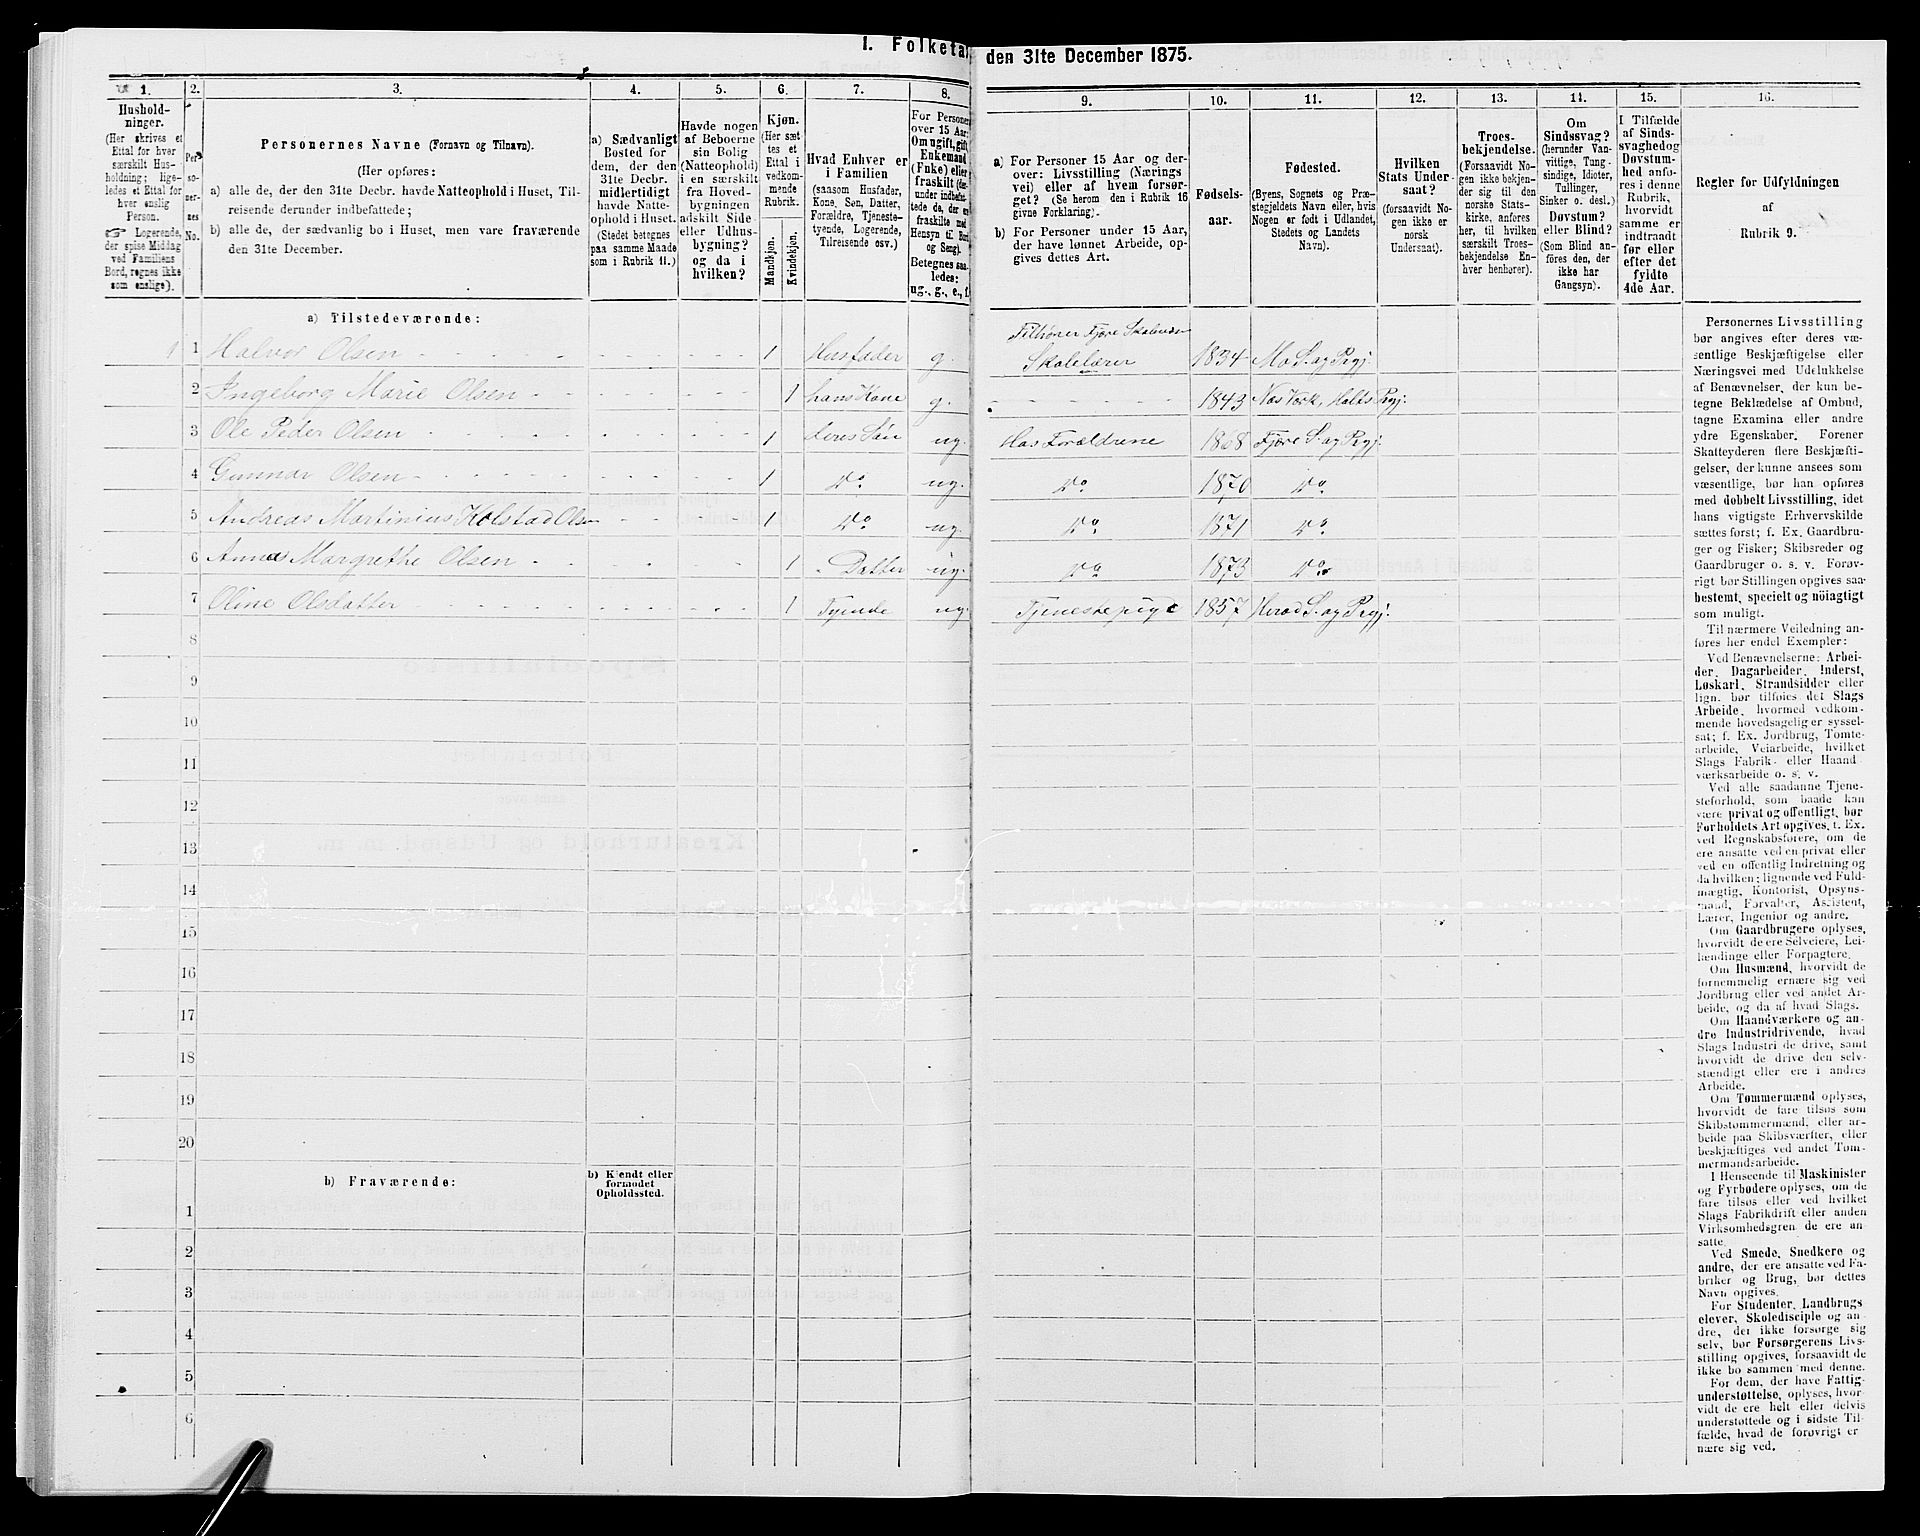 1. Folketal
den 31te December 1875.
1.
Hushold-
ninger.
(Her skrives et
Ettal for hver
særskilt Hus-
holdning; lige-
ledes et Ettal for
hver enslig
Person.
☞ Logerende,
der spise Middag
ved Familiens
Bord, regnes ikke
som enslige).
2.
Per-
so-
ner-
nes
No.
3.
Personernes Navne (Fornavn og Tilnavn).
(Her opføres:
a) alle de, der den 31te Decbr. havde Natteophold i Huset, Til-
reisende derunder indbefattede;
b) alle de, der sædvanlig bo i Huset, men vare fraværende
den 31te December.
4.
a) Sædvanligt
Bosted for
dem, der den
31te Decbr.
midlertidigt
havde Natte-
ophold i Huset.
(Stedet betegnes
paa samme Maade
som i Rubrik 11.)
5.
Havde nogen
af Beboerne
sin Bolig
(Natteophold)
i en særskilt
fra Hoved-
bygningen
adskilt Side-
eller Udhus-
bygning?
og da i
hvilken?
6.
Kjøn.
(Her sæt-
tes et
Ettal i
vedkom-
mende
Rubrik.
Mandkjøn.
Kvindekjøn.
7.
Hvad Enhver er
i Familien
(saasom Husfader,
Kone, Søn, Datter,
Forældre, Tjeneste-
tyende, Logerende,
Tilreisende osv.)
8.
For Personer
over 15 Aar:
Om ugift, gift,
Enkemand
(Enke) eller
fraskilt (der-
under indbefat-
tede de, der ere
fraskilte med
Hensyn til Bord
og Seng).
Betegnes saa-
ledes:
ug., g., e., f.
9.
a) For Personer 15 Aar og der-
over: Livsstilling (Nærings-
vei) eller af hvem forsør-
get? (Se herom den i Rubrik 16
givne Forklaring).
b) For Personer under 15 Aar,
der have lønnet Arbeide, op-
gives dettes Art.
10.
Fødsels-
aar.
11.
Fødested.
(Byens, Sognets og Præ-
stegjeldets Navn eller, hvis
Nogen er født i Udlandet,
Stedets og Landets
Navn).
12.
Hvilken
Stats Under-
saat?
(forsaavidt No-
gen ikke er
norsk
Undersaat).
13.
Troes-
bekjendelse.
(Forsaavidt No-
gen ikke bekjen-
der sig til den
norske Stats-
kirke, anføres
her, til hvilken
særskilt Troes-
bekjendelse En-
hver henhører).
14.
Om
Sindssvag?
(herunder Van-
vittige, Tung-
sindige, Idioter,
Tullinger,
Sinker o. desl.)
Døvstum?
eller Blind?
(Som Blind an-
føres den, der
ikke har
Gangsyn).
15.
I Tilfælde
af Sinds-
svaghed og
Døvstum-
hed anfø-
res i denne
Rubrik,
hvorvidt
samme er
indtraadt
før eller
efter det
fyldte
4de Aar.
16.
Regler for Udfyldningen
af
Rubrik 9.
a) Tilstedeværende:
Kirkesanger Fjære Skolevæsen
1 1 Halvor Olsen 1 Husfader g. Skolelærer 1834 Mo S. og Prgj.
2 Ingeborg Marie Olsen 1 hans Kone g. 1843 Næs Værk, Holts Prgj.
3 Ole Peder Olsen 1 deres Søn ug. Hos Forældrene 1868 Fjære S. og Prgj.
4 Gunnar Olsen 1 do ug. do 1870 do
5 Andreas Martinius Kolstad Olsen 1 do ug. do 1871 do
6 Anna Margrethe Olsen 1 Datter ug. do 1873 do
7 Oline Olsdatter 1 Tyende ug. Tjenestepige 1857 Herad S. og Prgj.
8
9
10
11
12
13
14
15
16
17
18
19
20
b) Fraværende:
b) Kjendt eller
formodet
Opholdssted.
1
2
3
4
5
6
Personernes Livsstilling
bør angives efter deres væ-
sentlige Beskjæftigelse eller
Næringsvei med Udelukkelse
af Benævnelser, der kun be-
tegne Beklædelse af Ombud,
tagne Examina eller andre
ydre Egenskaber. Forener
Skatteyderen flere Beskjæfti-
gelser, der kunne ansees som
væsentlige, bør han opføres
med dobbelt Livsstilling, idet
hans vigtigste Erhvervskilde
sættes først; f. Ex. Gaardbru-
ger og Fisker; Skibsreder og
Gaardbruger o. s. v. Forøv-
rigt bør Stillingen opgives saa
bestemt, specielt og nöiagtigt
som muligt.
Til nærmere Veiledning an-
føres her endel Exempler:
Ved Benævnelserne: Arbei-
der, Dagarbeider, Inderst,
Løskarl, Strandsidder eller
lign. bør tilføies det Slags
Arbeide, hvormed vedkom-
mende hovedsagelig er syssel-
sat; f. Ex. Jordbrug, Tomte-
arbeide, Veiarbeide, hvilket
Slags Fabrik- eller Haand-
værksarbeide o. s. v.
Ved alle saadanne Tjene-
steforhold, som baade kan
være privat og offentligt, bør
Forholdets Art opgives, t. Ex.
ved Regnskabsførere, om de
ere ansatte ved en privat eller
ved en offentlig Indretning og
da hvilken; lignende ved Fuld-
mægtig, Kontorist, Opsyns-
mand, Forvalter, Assistent,
Lærer, Ingeniør og andre.
Om Gaardbrugere oplyses,
hvorvidt de ere Selveiere, Lei-
lændinge eller Forpagtere.
Om Husmænd, hvorvidt de
fornemmelig ernære sig ved
Jordbrug eller ved andet Ar-
beide, og da af hvad Slags.
Om Haandværkere og an-
dre Industridrivende, hvad
Slags Industri de drive, samt
hvorvidt de drive den selv-
stændigt eller ere i andres
Arbeide.
Om Tømmermænd oplyses,
hvorvidt de fare tilsøs som
Skibstømmermænd, eller ar-
beide paa Skibsværfter, eller
beskjæftiges ved andet Tøm-
mermandsarbeide.
I Henseende til Maskinister
og Fyrbødere oplyses, om de
fare tilsøs eller ved hvilket
Slags Fabrikdrift eller anden
Virksomhedsgren de ere an-
satte.
Ved Smede, Snedkere og
andre, der ere ansatte ved Fa-
briker og Brug, bør dettes
Navn opgives.
For Studenter, Landbrugs-
elever, Skoledisciple og an-
dre, der ikke forsørge sig
selv, bør Forsørgerens Livs-
stilling opgives, forsaavidt de
ikke bo sammen med denne.
For dem, der have Fattig-
understøttelse, oplyses, hvor-
vidt de ere helt eller delvis
understøttede og i sidste Til-
fælde, hvad de forøvrigt er-
nære sig ved.